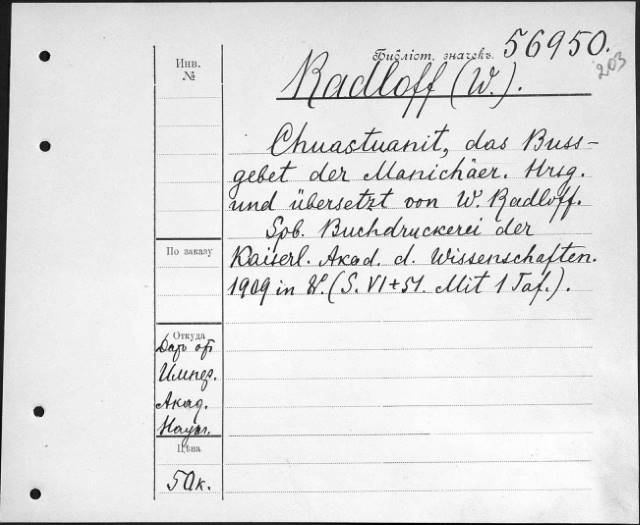 Инв.
№
Библіот. значекъ. 56950.
203
Radloff (W.).
Chuastuanit, das Buss-
gebet der Manichäer. Hrsg.
und übersetzt von W. Radloff.
Spb. Buchdruckerei der
Kaiserl. Akad. d. Wissenschaften.
1909 in 8°. (S. VI+51. Mit 1 Taf.).
По заказу
Откуда
Даръ от
Импер.
Акад.
Наукъ.
Цѣна
50к.